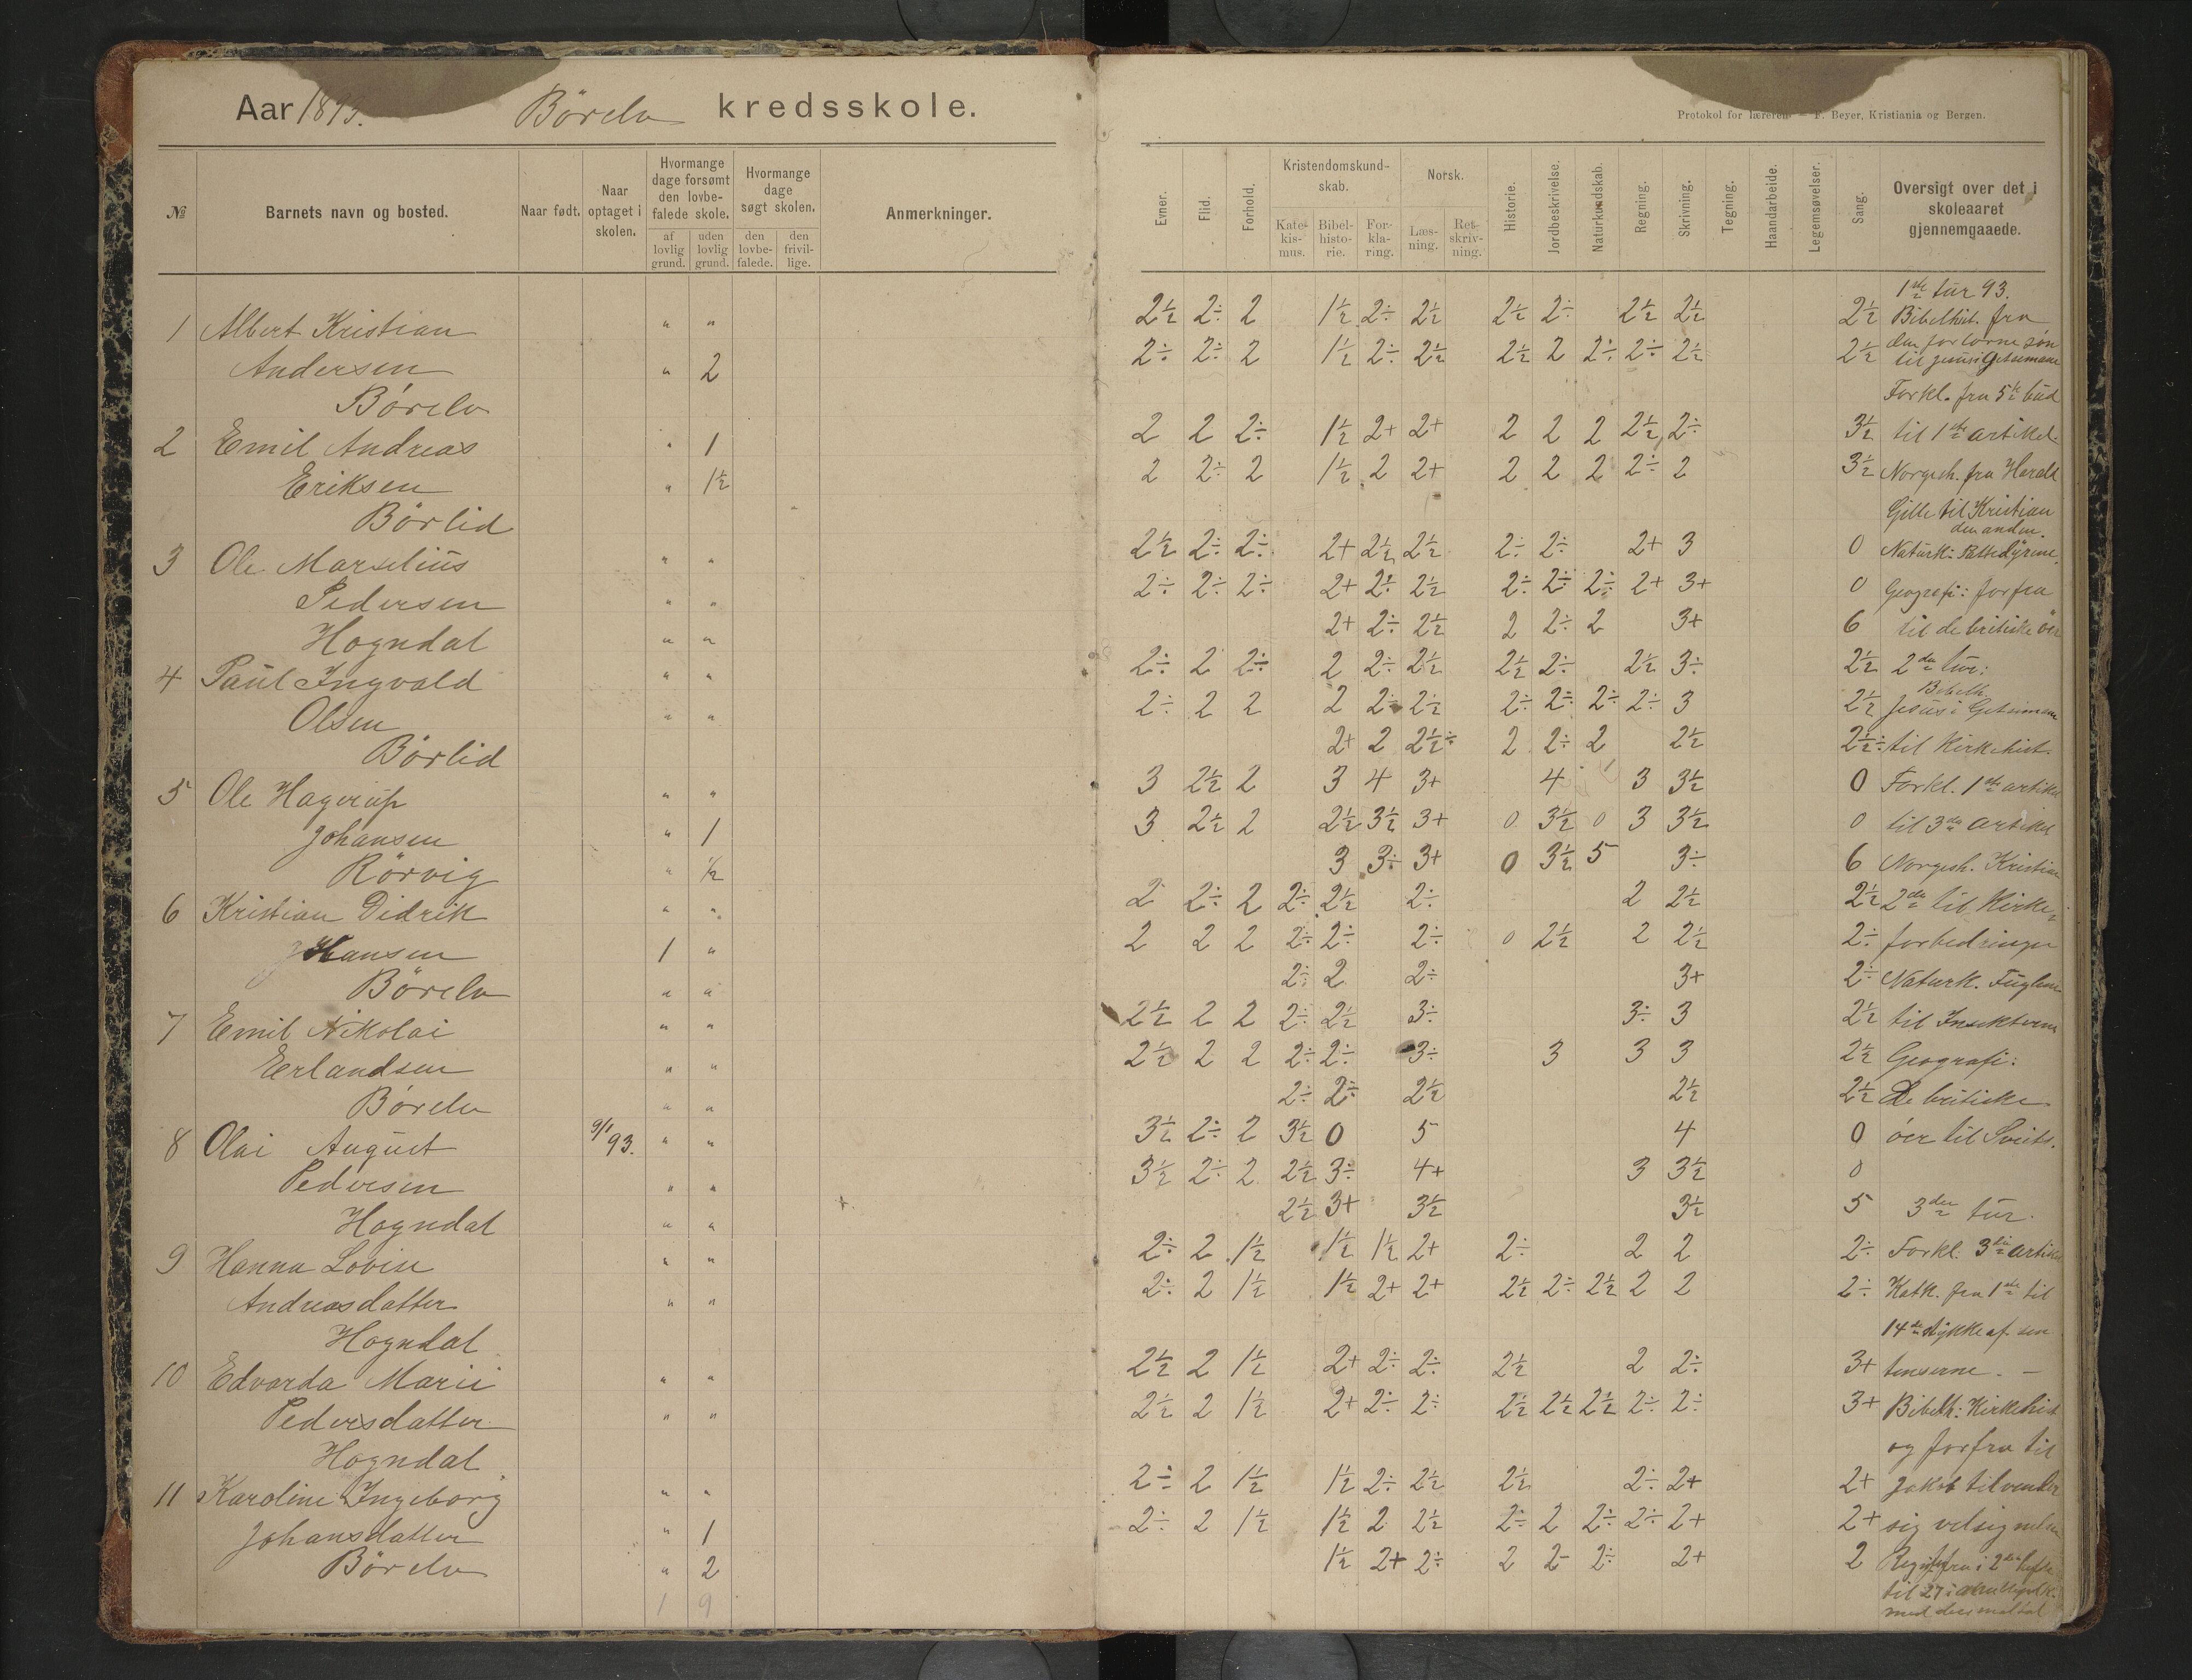 Aar 1893. Börelv kredsskole.
Protokol for læreren — F. Beyer, Kristiania og Bergen.
№ Barnets navn og bosted. Naar født. Naar optaget i skolen. Hvormange dage forsømt den lovbefalede skole. af lovlig grund. uden lovlig grund. Hvormange dage søgt skolen. den lovbefalede. den frivillige. Anmerkninger.
Evner. Flid. Forhold. Kristendomskundskab. Katekismus. Bibelhistorie. Forklaring. Norsk. Læsning. Retskrivning. Historie. Jordbeskrivelse. Naturkundskab. Regning. Skrivning. Tegning. Haandarbeide. Legemsøvelser. Sang. Oversigt over det i skoleaaret gjennemgaaede.
1 Albert Kristian " "
Andersen " 2
Börelv
2 Emil Andreas " 1
Eriksen " 1½
Börlid
3 Ole Marselius " "
Pedersen " "
Hogndal " "
4 Paul Ingvald " "
Olsen " "
Börlid
5 Ole Hagerup " "
Johansen " 1
Rörvig " ½
6 Kristian Didrik " "
Hansen 1 "
Börelv " "
7 Emil Nikolai " "
Erlandsen " "
Börelv " "
8 Olai August 9/1 93. " "
Pedersen " "
Hogndal " "
9 Hanna Lovise " "
Andreasdatter " "
Hogndal
10 Edvarda Marie " "
Pedersdatter " "
Hogndal
11 Karoline Ingeborg " "
Johansdatter " 1
Börelv " 2
1 9
1ste tur 93.
2½ 2÷ 2 1½ 2÷ 2½ 2½ 2÷ 2½ 2½ 2½ Bibelhist. fra
den fortorne søn
2÷ 2÷ 2 1½ 2÷ 2½ 2½ 2 2÷ 2÷ 2½ 2½ til Jesus i Getsemane
Forkl. fra 5te bud
2 2 2÷ 1½ 2+ 2+ 2 2 2 2½ 2÷ 3½ til 1ste artikel.
2 2÷ 2 1½ 2 2+ 2 2 2 2÷ 2 3½ Norgesh. fra Harald
Gille til Kristian
den anden.
2½ 2÷ 2÷ 2+ 2½ 2½ 2÷ 2÷ 2+ 3 0 Naturk: Pattedyrene.
2÷ 2÷ 2÷ 2+ 2÷ 2½ 2÷ 2÷ 2÷ 2+ 3+ 0 Geografi: forfra
2+ 2÷ 2½ 2 2÷ 2 3+ 6 til de britiske öer
2÷ 2 2÷ 2 2÷ 2½ 2½ 2÷ 2½ 3÷ 2½ 2den tur:
Bibelh.
2÷ 2 2 2 2÷ 2½ 2÷ 2÷ 2÷ 2÷ 3 2½ Jesus i Getsemane
2+ 2 2½÷ 2 2÷ 2 2½ 2½÷ til Kirkehist.
3 2½ 2 3 4 3+ 4 3 3½ 0 Forkl. 1ste artikel
3 2½ 2 2½ 3½ 3+ 0 3½ 0 3 3½ 0 til 3die artikel
3 3÷ 3+ 0 3½ 5 3÷ 6 Norgesh. Kristian
2 2÷ 2 2÷ 2½ 2÷ 2 2½ 2½ 2den til Kirke-
2 2 2 2÷ 2÷ 2÷ 0 2½ 2 2½ 2÷ forbedringen
2÷ 2 2÷ 3+ 2÷ Naturk. Fuglene
2½ 2 2 2÷ 2½ 3÷ 3÷ 3 2½ til Insekterne
2½ 2 2 2÷ 2÷ 3÷ 3 3 3 2½ Geografi:
2÷ 2÷ 2½ 2½ 2½ De britiske
3½ 2÷ 2 3½ 0 5 4 0 öer til Sveits.
3½ 2÷ 2 2½ 3÷ 4+ 3 3½ 0
2½ 3+ 3½ 3½ 5 3die tur.
2÷ 2 1½ 1½ 1½ 2+ 2÷ 2 2 2÷ Forkl. 3die artikel
2÷ 2 1½ 1½ 2+ 2+ 2½ 2÷ 2½ 2 2 2÷ Katk. fra 1ste til
14de stykke af sen
2½ 2 1½ 2+ 2÷ 2÷ 2½ 2 2÷ 3+ tenserne. —
2½ 2 1½ 2+ 2÷ 2÷ 2½ 2½ 2½ 2÷ 2÷ 3+ Bibelh: Kirkehist
og forfra til
2÷ 2 1½ 1½ 2÷ 2½ 2½ 2÷ 2+ 2+ Jakob tilvender
2÷ 2 1½ 1½ 2 2½ 2÷ 2 2÷ 2÷ 2+ 2+ sig velsignelsen
1½ 2+ 2÷ 2 2- 2÷ 2+ 2 fra i 2det hefte
til 27
med